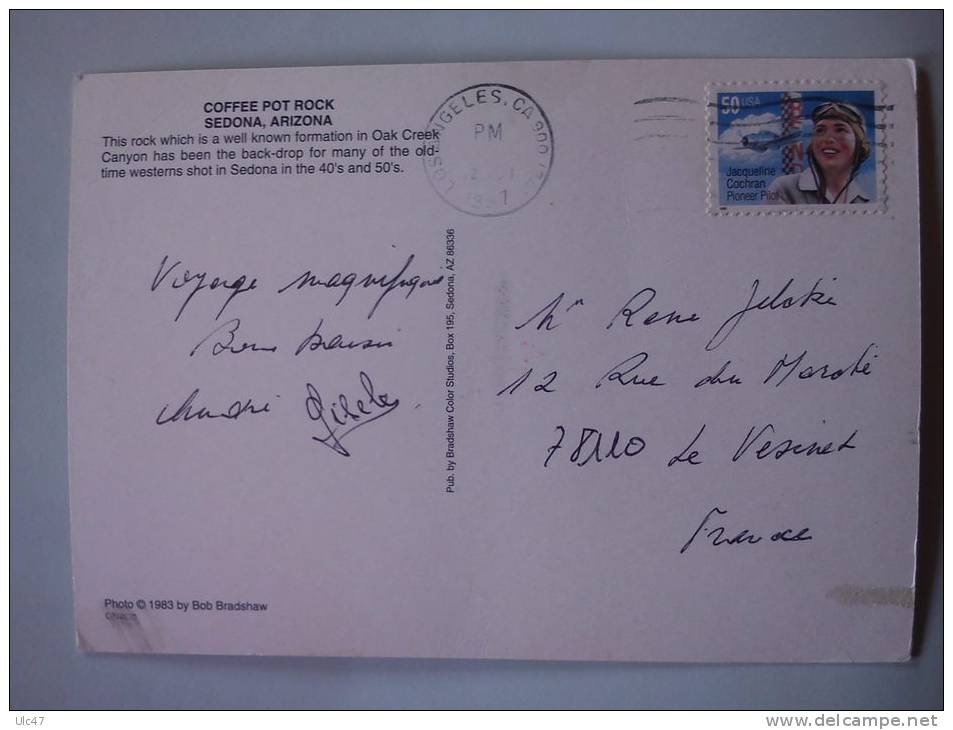 COFFEE POT ROCK
SEDONA, ARIZONA
This rock which is a well known formation in Oak Creek
Canyon has been the back-drop for many of the old-
time westerns shot in Sedona in the 40's and 50's.
LOS ANGELES, CA 900
PM
1997
50 USA
Jacqueline
Cochran
Pioneer Pilot
Voyage magnifique
Bons baisers
André Gisele
Pub. by Bradshaw Color Studios, Box 195, Sedona, AZ 86336
Mr Rene
12 Rue du Marché
78110 Le Vesinet
France
Photo © 1983 by Bob Bradshaw
Ulc47
www.delcampe.net